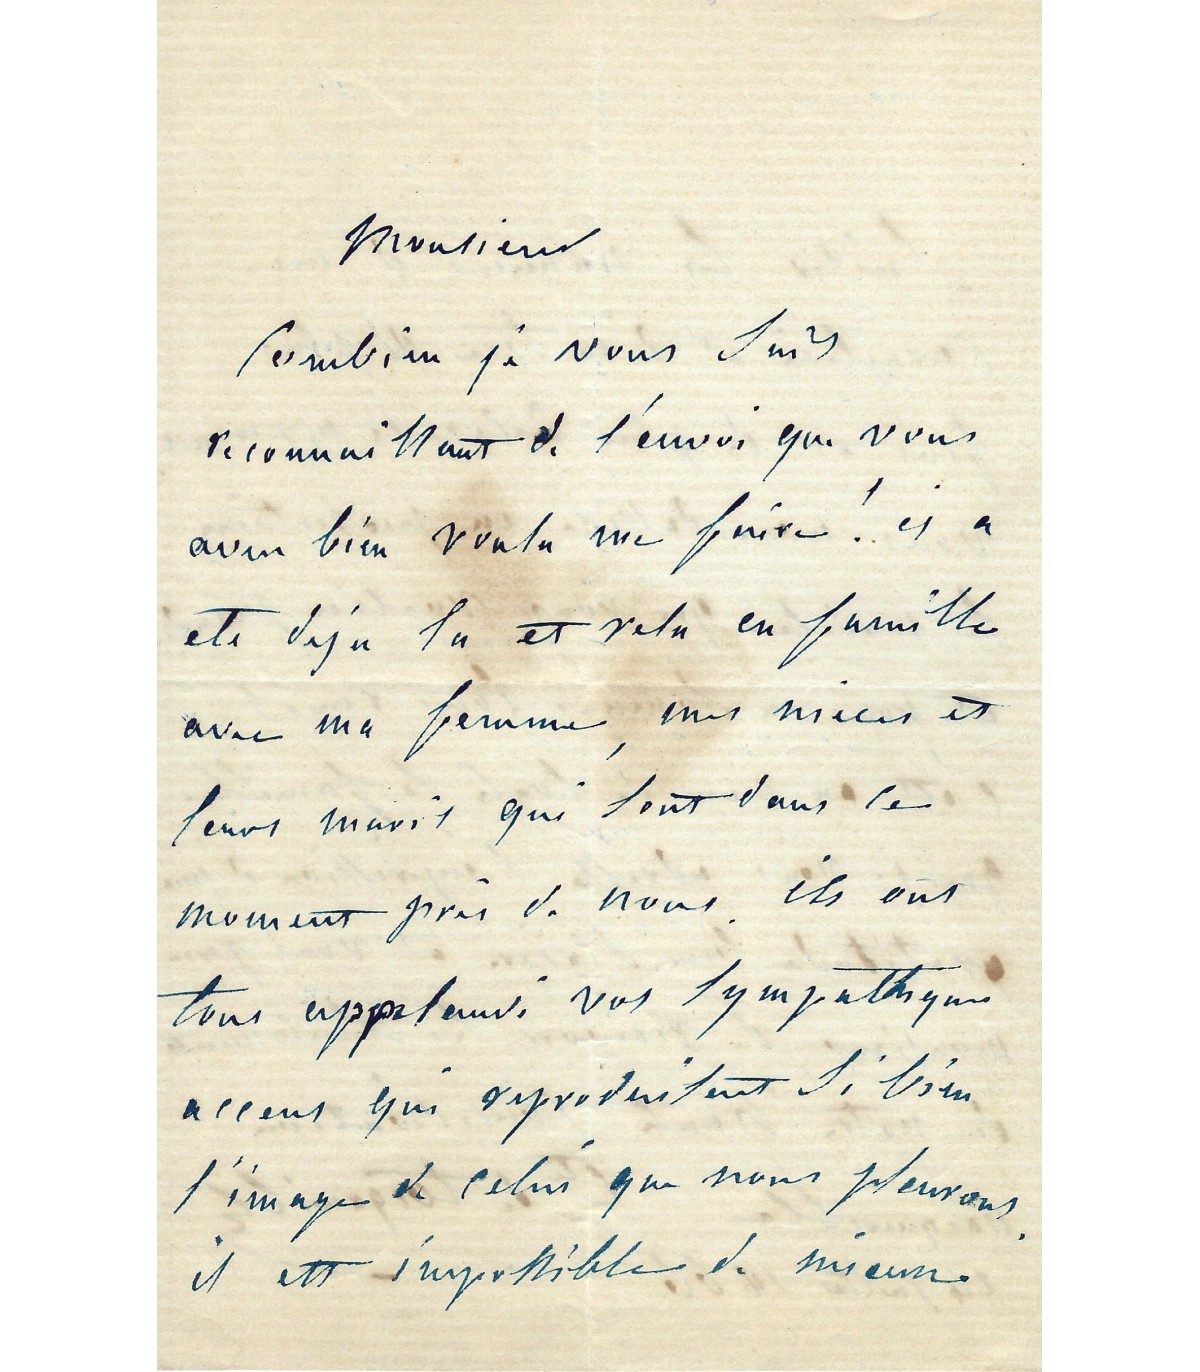 Monsieur
Combien je vous suis
reconnaissant de l'envoi que vous
avez bien voulu me faire! il a
ete deja lu et relu en famille
avec ma femme, mes nieces et
leurs maris qui sont dans ce
moment près de nous. ils ont
tous applaudi vos sympathiques
accens qui reproduisent si bien
l'image de celui que nous pleurons.
il est impossible de mieux